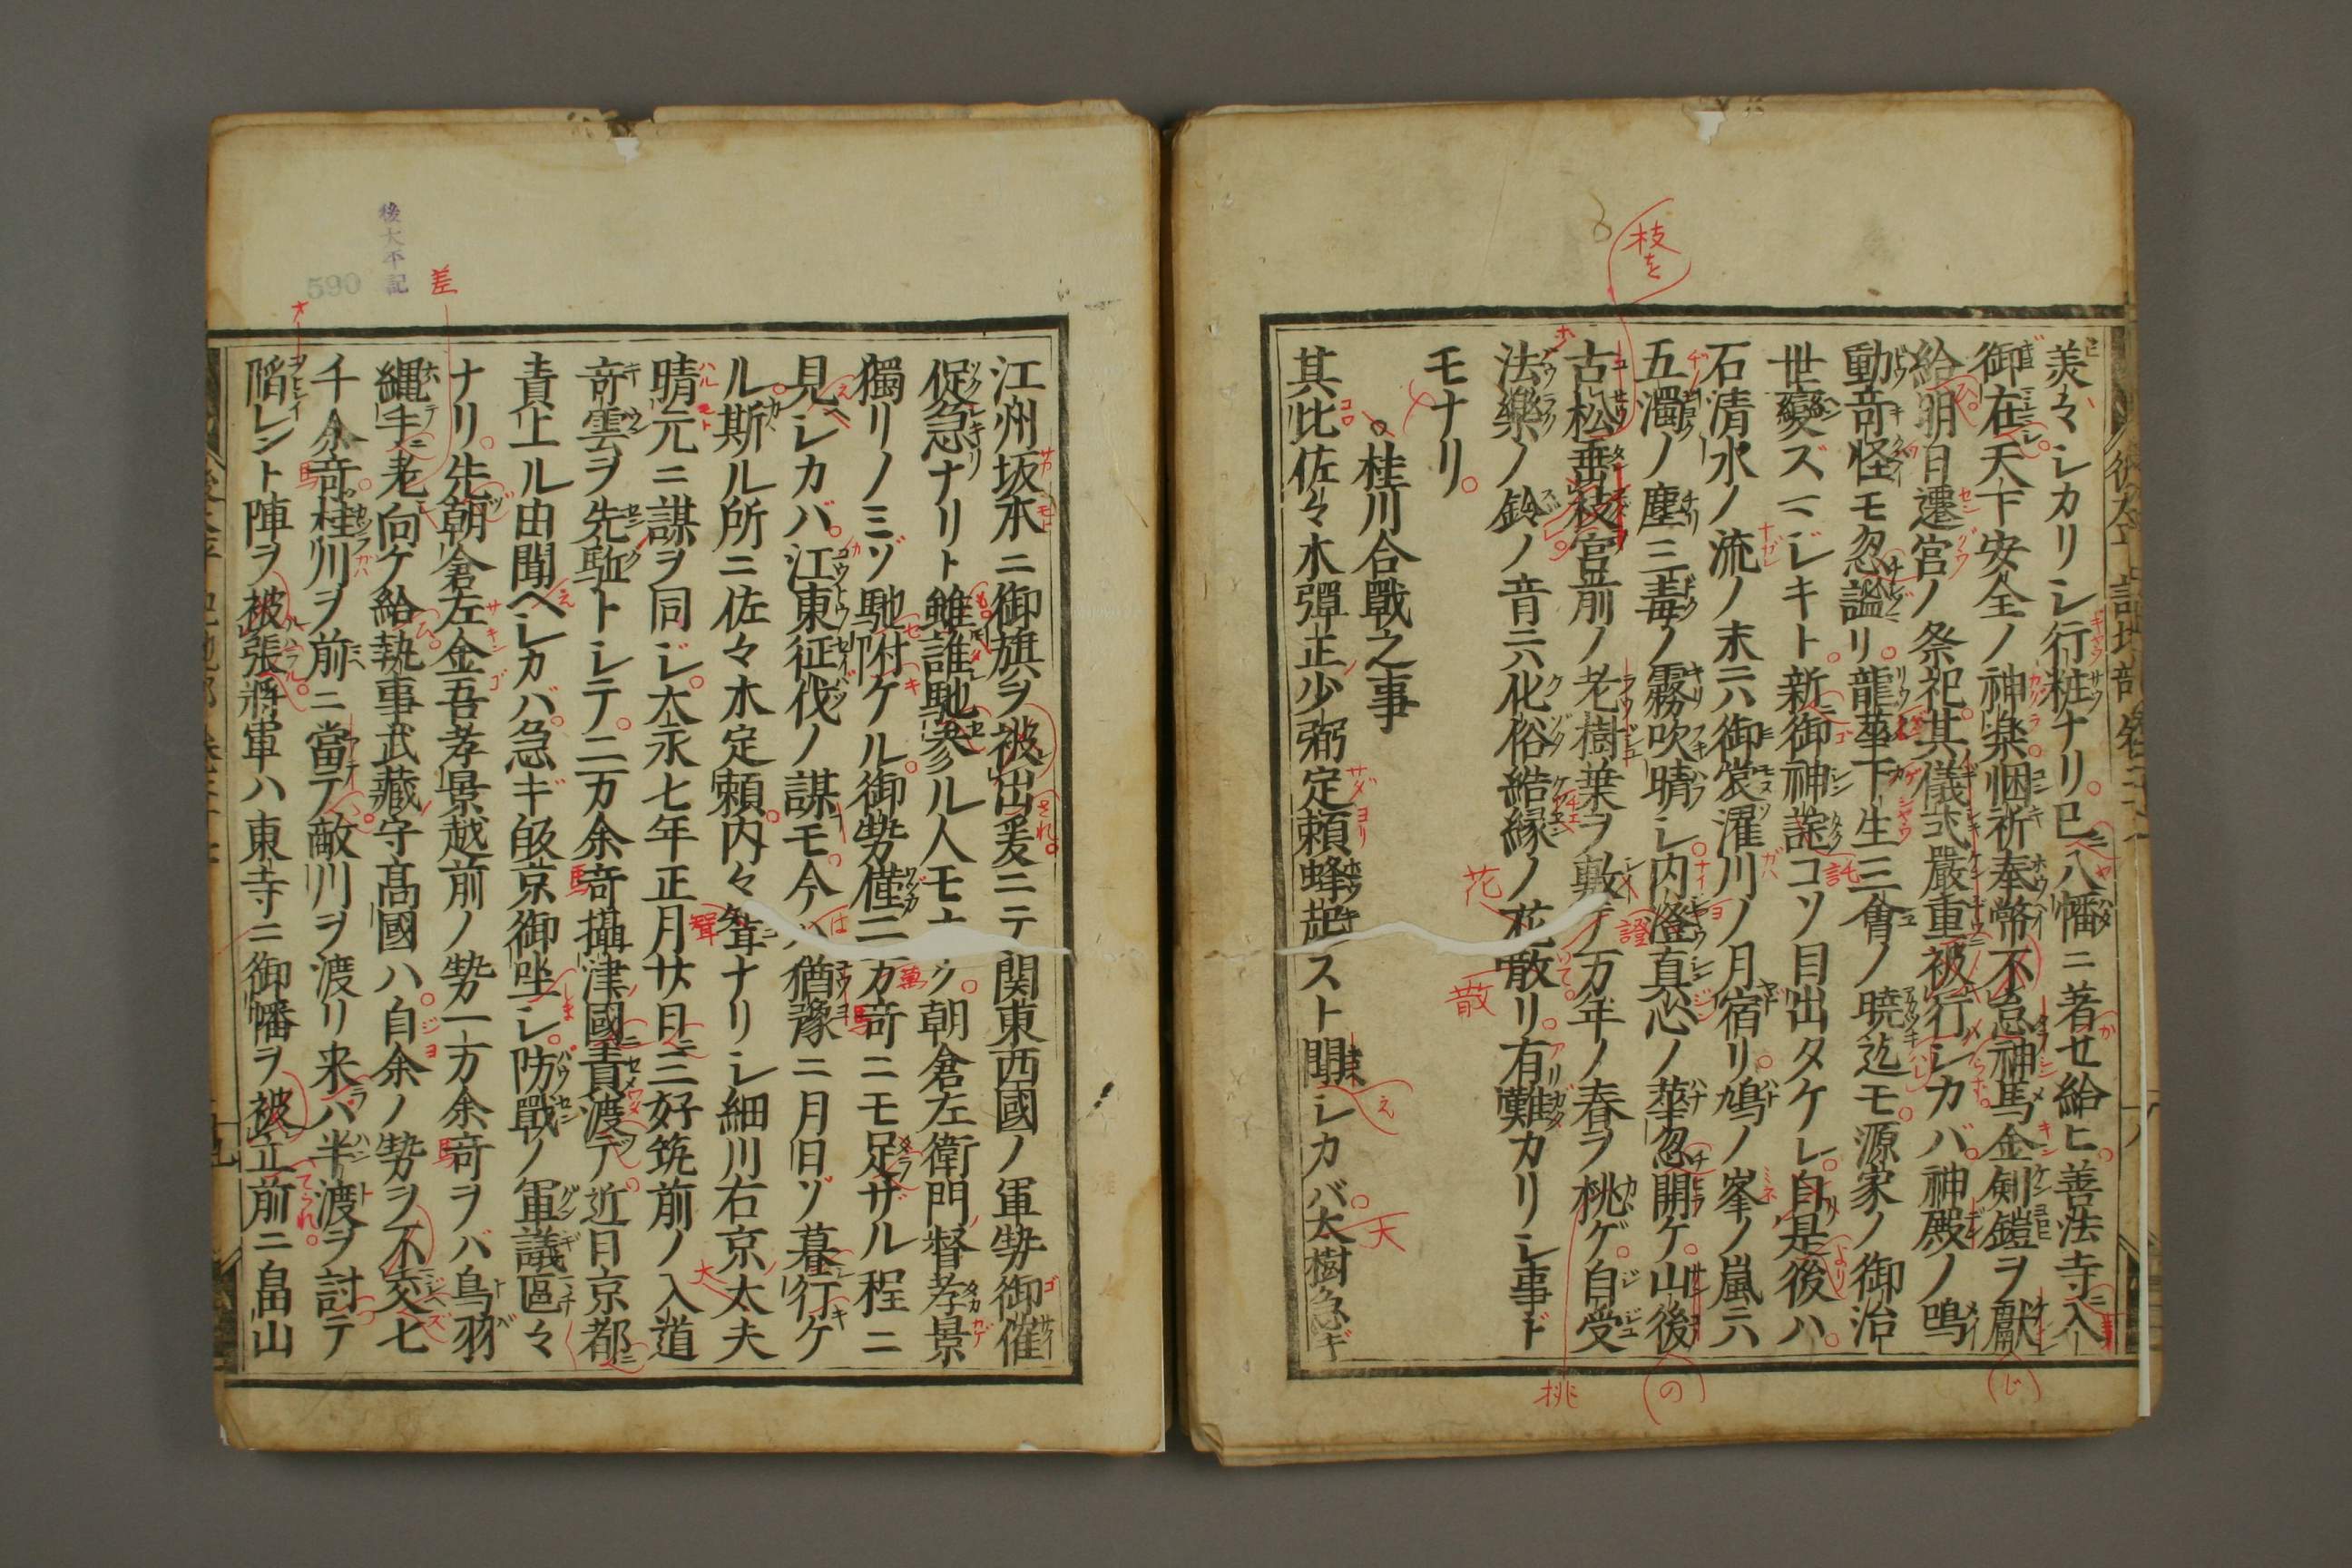 美々シカリシ行粧ナリ已ニ八幡ニ著セ給ヒ善法寺ニ入
御在天下安全ノ神楽悃祈奉幣不怠神馬金剣鎧ヲ獻
給明日遷宮ノ祭祀其儀式嚴重被行シカバ神殿ノ鳴
動竒怪モ忽謐リ龍華下生三會ノ暁迄モ源家ノ御治
世變ズマジキト新御神託コソ目出タケレ自是後ハ
石清水ノ流ノ末ニハ御裳濯川ノ月宿リ鳩ノ峯ノ嵐ニハ
五濁ノ塵三毒ノ霧吹晴シ内澄真心ノ華忽開ケ山後
古松垂枝宮前ノ老樹葉ヲ敷テ万年ノ春ヲ桃ゲ自受
法樂ノ鈴ノ音ニハ化俗結縁ノ花散リ有難カリシ事ド
モナリ
桂川合戰之事
其比佐々木彈正少弼定頼蜂起スト聞シカバ大樹急ギ
江州坂本ニ御旗ヲ被出爰ニテ関東西國ノ軍勢御催
促急ナリト雖誰馳参ル人モナク朝倉左衛門督孝景
獨リノミゾ馳附ケル御勢僅二万竒ニモ足ザル程ニ
見ヘシカバ江東征伐ノ謀モ今ハ猶豫ニ月日ゾ暮行ケ
ル斯ル所ニ佐々木定頼内々聟ナリシ細川右京太夫
晴元ニ謀ヲ同ジ大永七年正月廿日三好筑前ノ入道
竒雲ヲ先駈トシテ二万余竒攝津國責渡テ近日京都ニ
責上ル由聞ヘシカバ急ギ皈京御坐シ防戰ノ軍議區々
ナリ先朝倉左金吾孝景越前ノ勢一万余竒ヲバ鳥羽
縄手ニ差向ケ給執事武藏守髙國ハ自余ノ勢ヲ不交七
千余竒桂川ヲ前ニ當テ敵川ヲ渡リ来ハ半渡ヲ討テ
陥レント陣ヲ被張將軍ハ東寺ニ御幡ヲ被立前ニ畠山
後太平記
590
枝を
差
花
散
桃
天